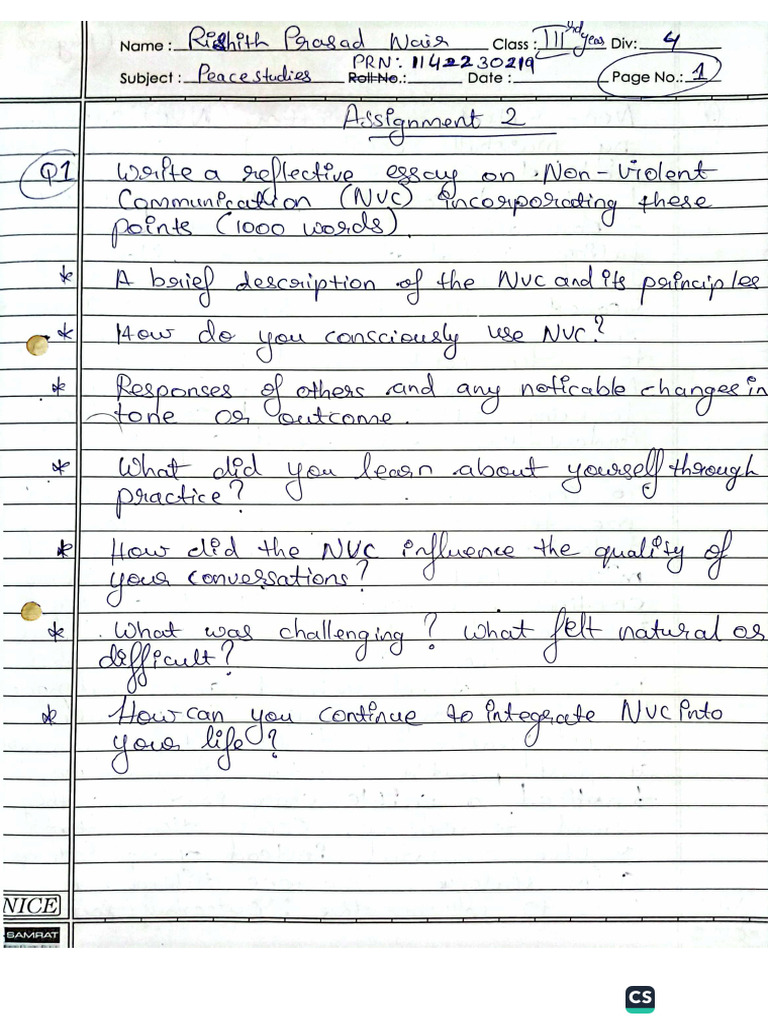 Name : Rishith Prasad Nair Class : IIIrd year Div: 4
Subject : Peace studies PRN: 11422230219 Roll No.: Date : Page No.: 1
Assignment 2
Q1 Write a reflective essay on Non-Violent
Communication (NVC) incorporating these
points (1000 words).
* A brief description of the NVC and its principles
* How do you consciously use NVC?
* Responses of others and any noticable changes in
tone or outcome.
* What did you learn about yourself through
practice?
* How did the NVC influence the quality of
your conversations?
* What was challenging? What felt natural or
difficult?
* How can you continue to integrate NVC into
your life?
NICE
SAMRAT
CS